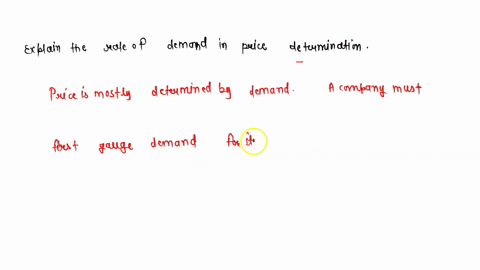 Explain the role of demand in price determination.
Price is mostly determined by demand. A company must
first gauge demand for it